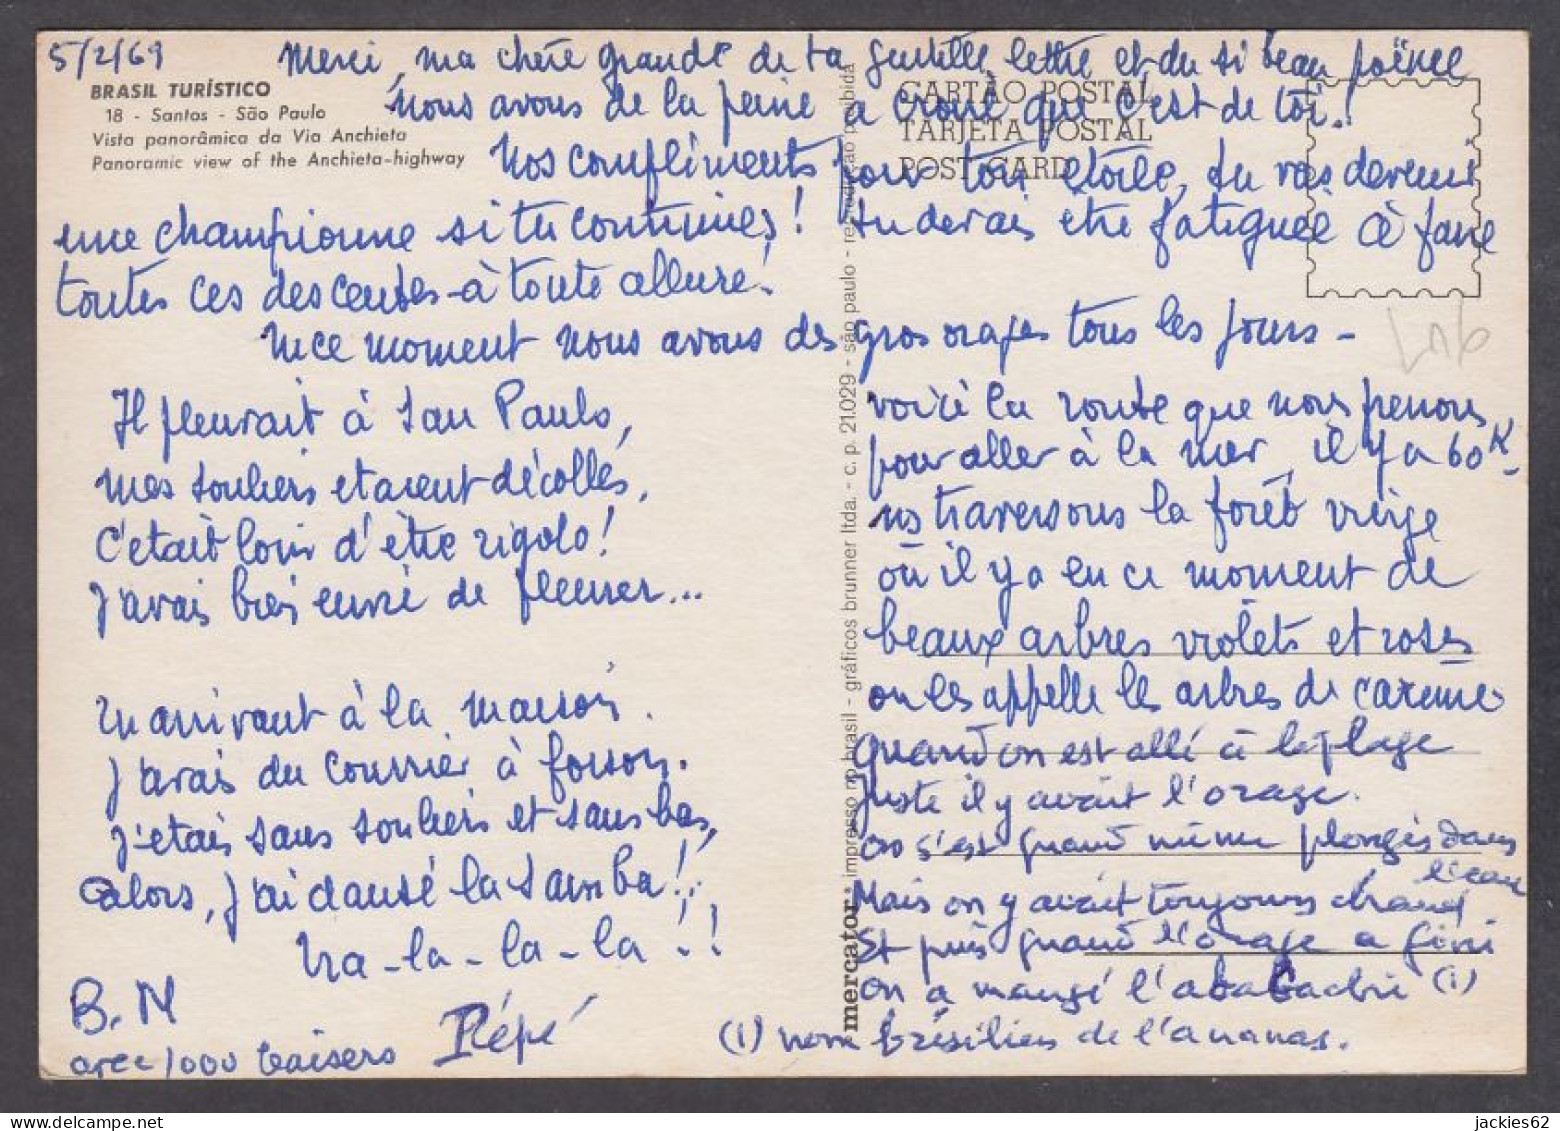 5/2/69
Merci, ma chère grande de ta gentille lettre et du si beau poëme
BRASIL TURÍSTICO
18 - Santos - São Paulo
Vista panorâmica da Via Anchieta
Panoramic view of the Anchieta-highway
CARTÃO POSTAL
TARJETA POSTAL
POST CARD
nous avons de la peine à croire que c'est de toi.!
Nos compliments pour ton étoile, tu vas devenir
une championne si tu continues! tu devrais être fatiguée à faire
toutes ces descentes à toute allure!
En ce moment nous avons des gros orages tous les jours -
Il pleuvait à San Paulo,
mes souliers étaient décollés,
c'était loin d'être rigolo!
J'avais bien envie de pleurer...
En arrivant à la maison.
J'avais du courrier à foison.
J'étais sans souliers et sans bas,
alors, j'ai dansé la samba!
tra-la-la-la!!
B. M
avec 1000 baisers Pépé
voici la route que nous prenons
pour aller à la mer, il y a 60 K -
ns traversons la forêt vierge
où il y a en ce moment de
beaux arbres violets et roses
on les appelle les arbres de carême
Quand on est allé à la plage
juste il y avait l'orage.
on s'est quand même plongés dans
l'eau
Mais on y avait toujours chaud
Et puis quand l'orage a fini
on a mangé l'ababachi (1)
(1) nom brésilien de l'ananas.
mercator • impresso no brasil - gráficos brunner ltda. - c. p. 21.029 - são paulo - reprodução proibida
jackies62